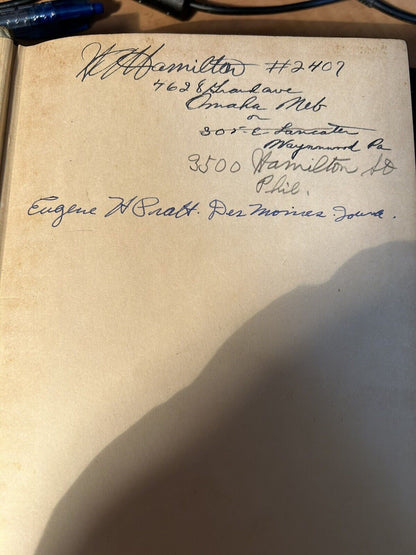 Hamilton #2407
4628 Grand ave
Omaha Neb
or
305 E Lancaster
Waynnwood Pa
3500 Hamilton St
Phil.
Eugene H Pratt. Des Moines. Iowa.